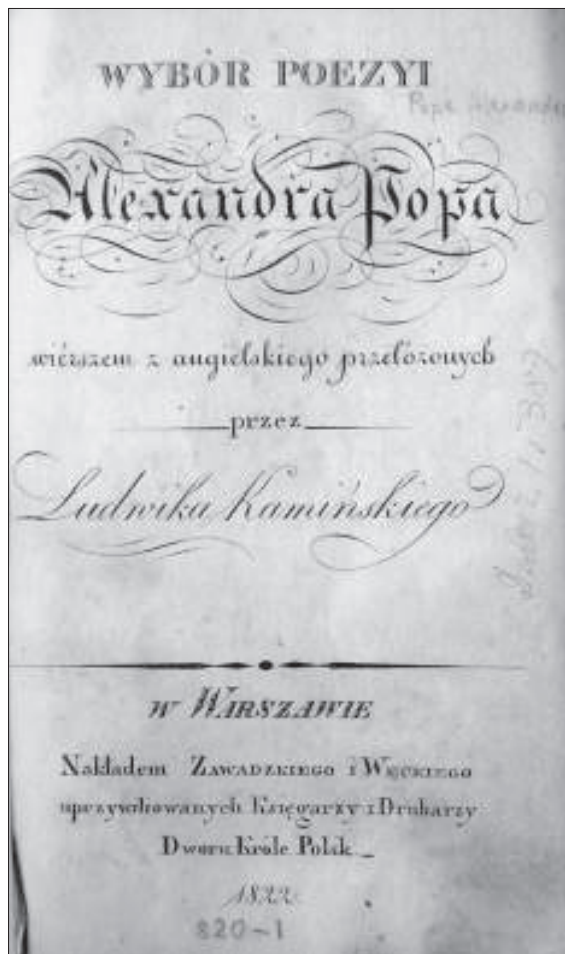 WYBÓR POEZYI
Pope Alexander
Alexandra Popa
wiérszem z angielskiego przełożonych
przez
Ludwika Kamińskiego
w WARSZAWIE
Nakładem ZAWADZKIEGO i WĘCKIEGO
uprzywilejowanych Księgarzy i Drukarzy
Dworu Króle Polsk
1822
820-1